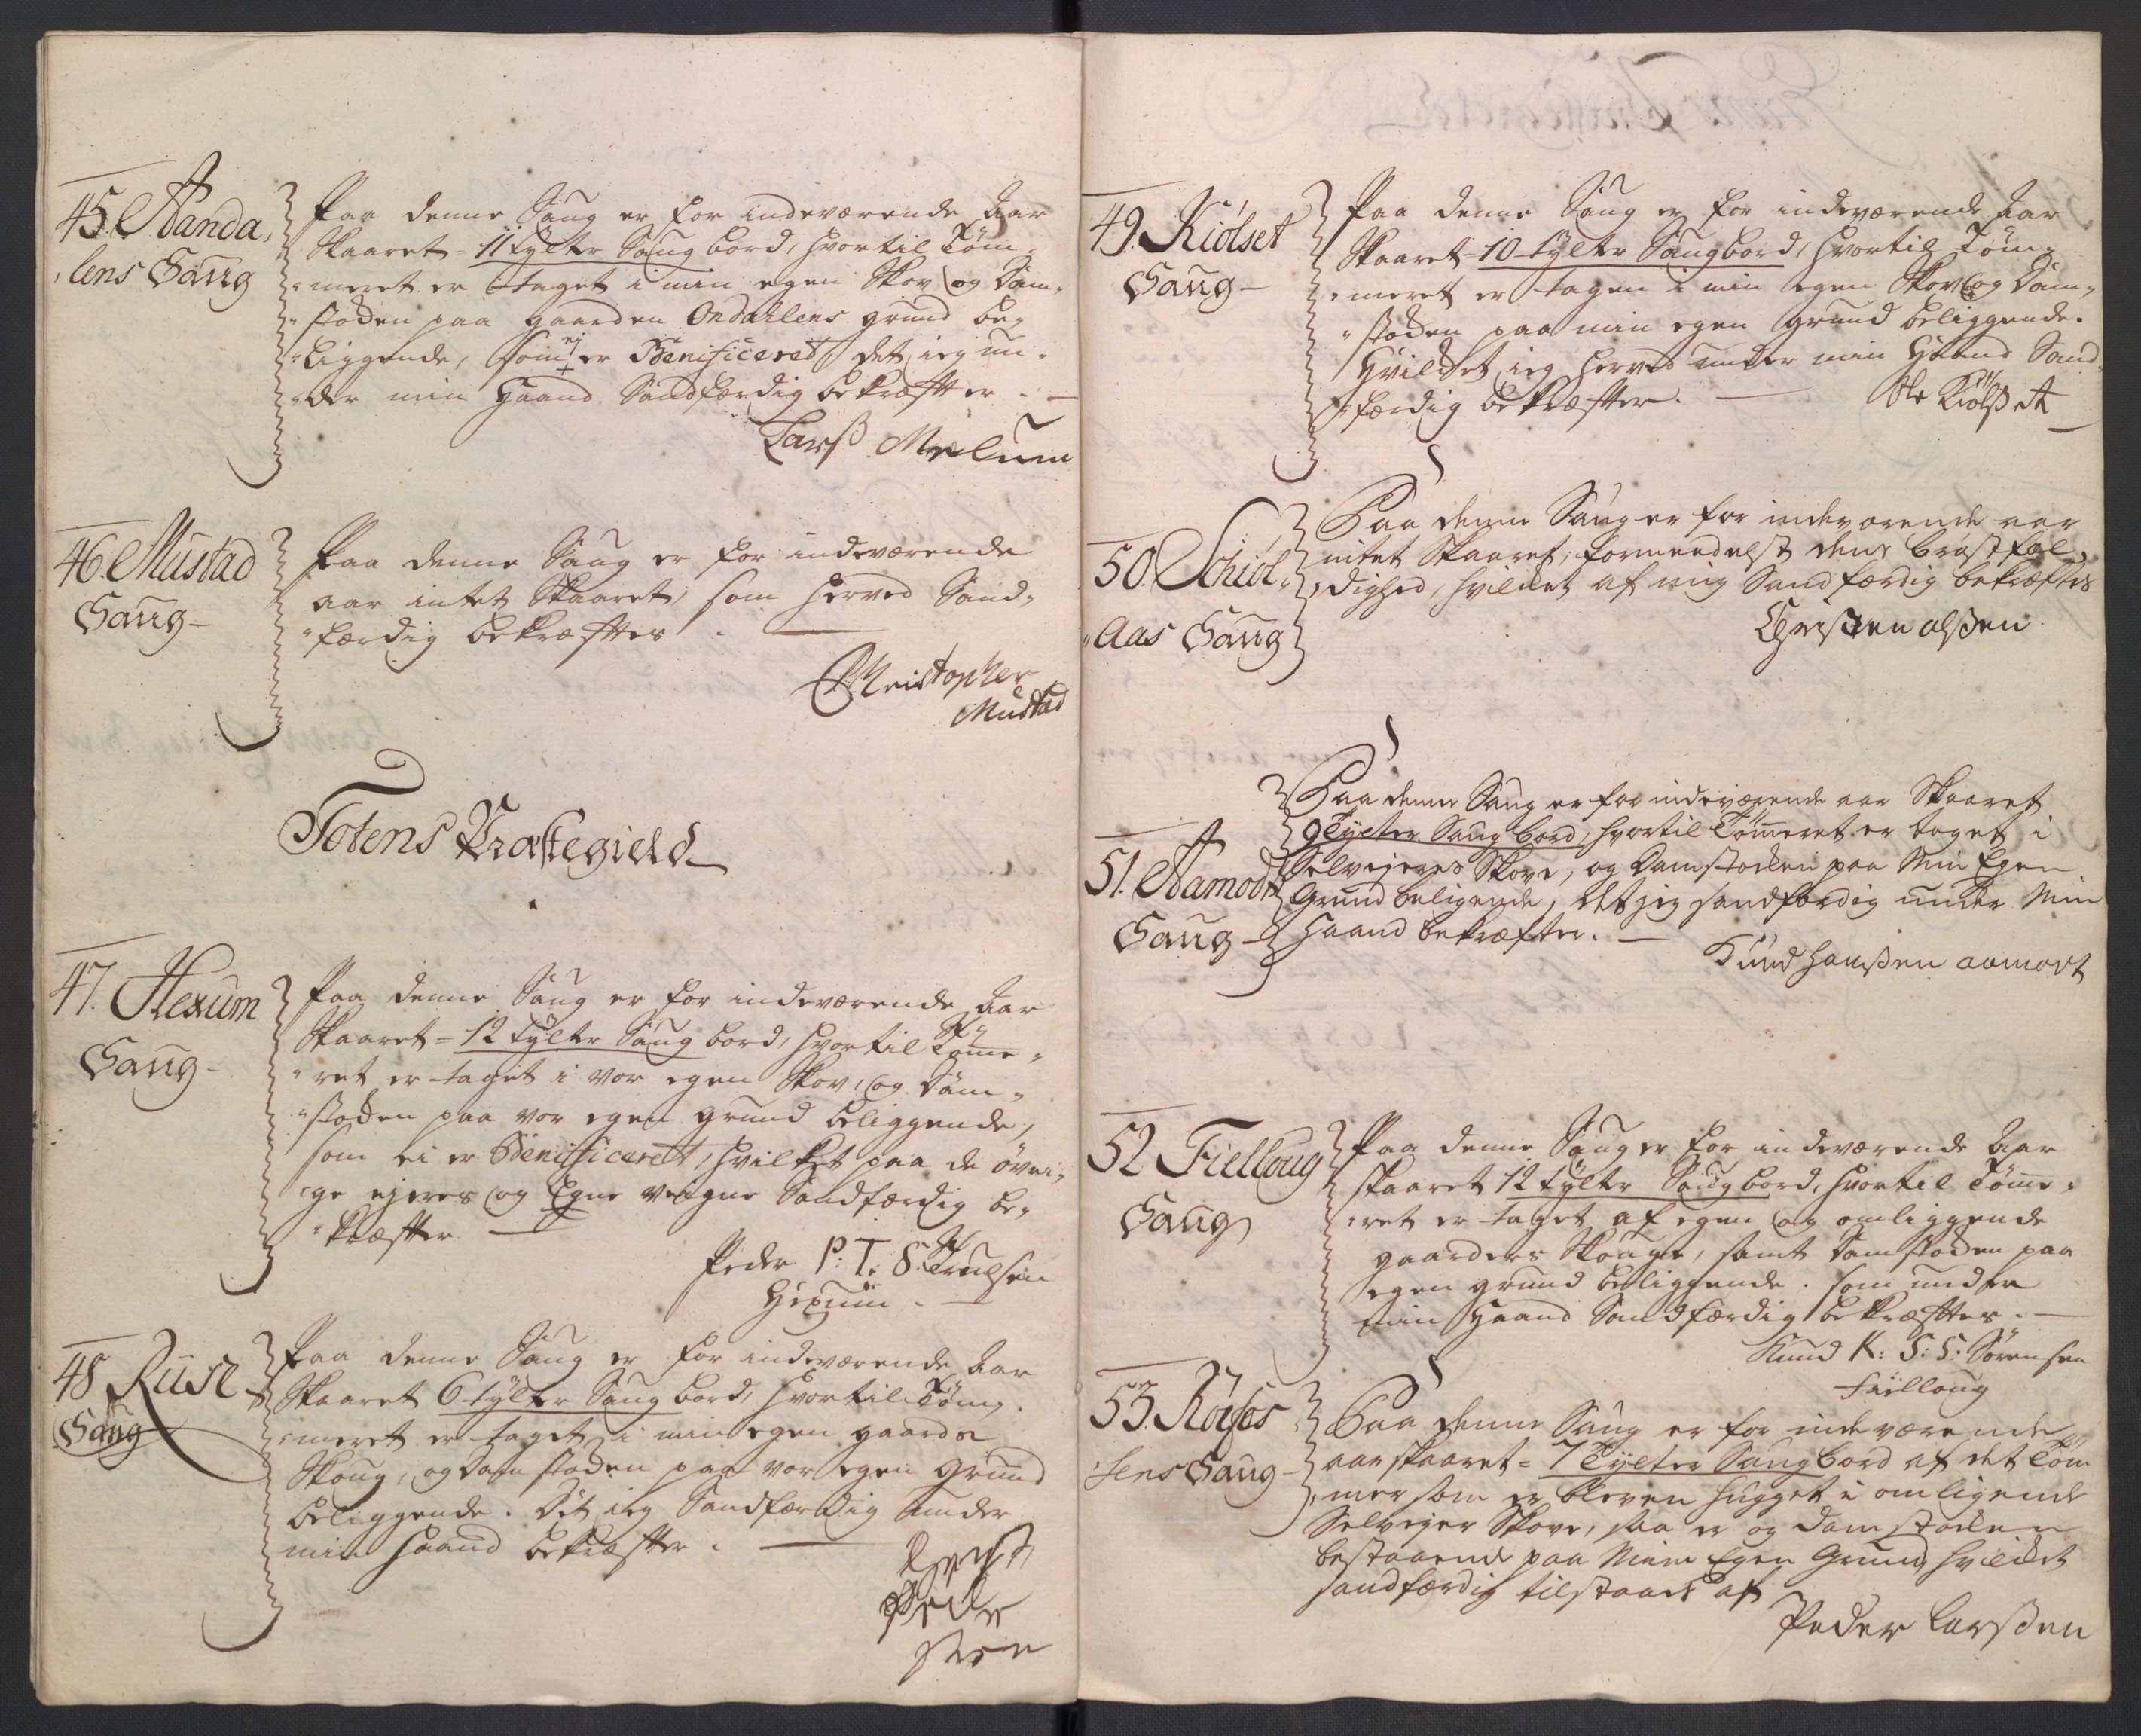 45. Aanda,
lens Saug
Paa denne Saug er for indeværende Aar
Skaaret - 11 tylter Saug bord, hvortil Töm-
meret er taget i min egen Skov og Dam-
stoden paa gaarden Ondahlens grund be-
liggende, som ej er Benificeret, det ieg un-
der min Haand Sandfærdig bekræfter. —
Larß Mælum
46. Mustad
Saug –
Paa denne Saug er for indeværende
aar intet Skaaret, som herved Sand-
færdig bekræfftes. —
Christopher
Mustad
Totens Præstegield
47. Hexum
Saug –
Paa denne Saug er for indeværende Aar
Skaaret = 12 tylter Saug bord, hvortil Tömme-
ret er taget i vor egen Skov, og Dam-
stoden paa vor egen grund beliggende,
som ei er Benificeret, hvilket paa de övri-
ge ejeres og Egne veigne Sandfærdig be-
kræffter —
Peder P: T: S: Trulsen
Hexum. —
48 Ruse
Saug
Paa denne Saug er for indeværende Aar
Skaaret 6 tylter Saug bord, hvortil Töm-
meret er taget i min egen gaards
Skoug, og Dam stoden paa vor egen grund
beliggende. Det ieg Sandfærdig under
min Haand bekræffter. —
49. Kiölset
Saug –
Paa denne Saug er for indeværende Aar
Skaaret = 10 tylter Saugbord, hvortil Töm-
meret er tagen i min egen Skov og Dam-
stoden paa min egen grund beliggende.
Hvilket ieg herved under min Haand Sand-
færdig bekræfter. —
Ole Kiölßet
50. Schiöl-
Aas Saug
Paa denne Saug er for indeværende aar
intet Skaaret, formedelst dens bröstfæl-
dighed, hvilket af mig Sandfærdig bekræftes
Christen olßen
51. Aamodt
Saug –
Paa denne Saug er for indeværende aar Skaaret
9 Tylter Saug bord, hvortil Tömmeret er taget i
Selvejeres Skove, og Damstocken paa Min Egen
Grund beligende, det jeg sandfærdig under Min
Haand bekræfter. —
Knud Hanßen aamort
52 Fielloug
Saug
Paa denne Saug er for indeværende Aar
skaaret 12 tylter Saug bord, hvortil Tömme-
ret er taget af egen og omliggende
gaarders Skouge, samt Dam stoden paa
egen grund beliggende. som under
min Haand Sandfærdig bekræfftes. —
Knud K: S: S: Sörensen
Fielloug
53. Röises
sens Saug –
Paa denne Saug er for indeværende
aar skaaret = 7 Tylter Saug bord af det Töm
mer som er bleven hugget i omligende
Selvejer Skove, saa er og dam stocken
bestaaende paa Min Egen Grund, hvilcket
sandfærdig tilstaaes af
Peder Larßen